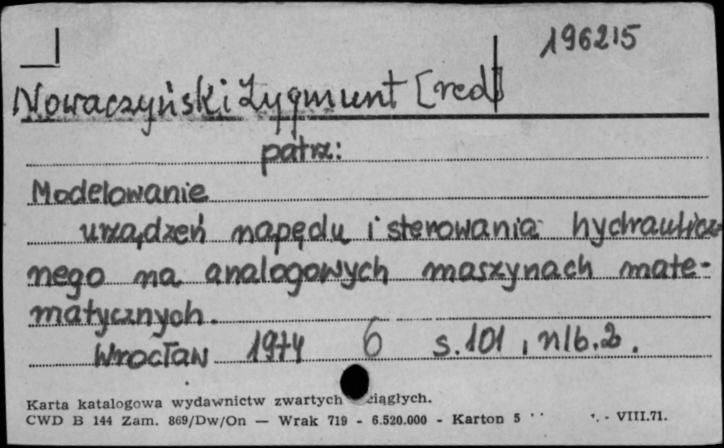 196215
Nowaczyński Zygmunt [red]
patrz:
Modelowanie
urządzeń napędu i sterowania hydraulicz-
nego na analogowych maszynach mate-
matycznych.
Wrocław 1974 6 s.101, nlb.2.
Karta katalogowa wydawnictw zwartych ciągłych.
CWD B 144 Zam. 869/Dw/On — Wrak 719 - 6.520.000 - Karton 5 - VIII.71.